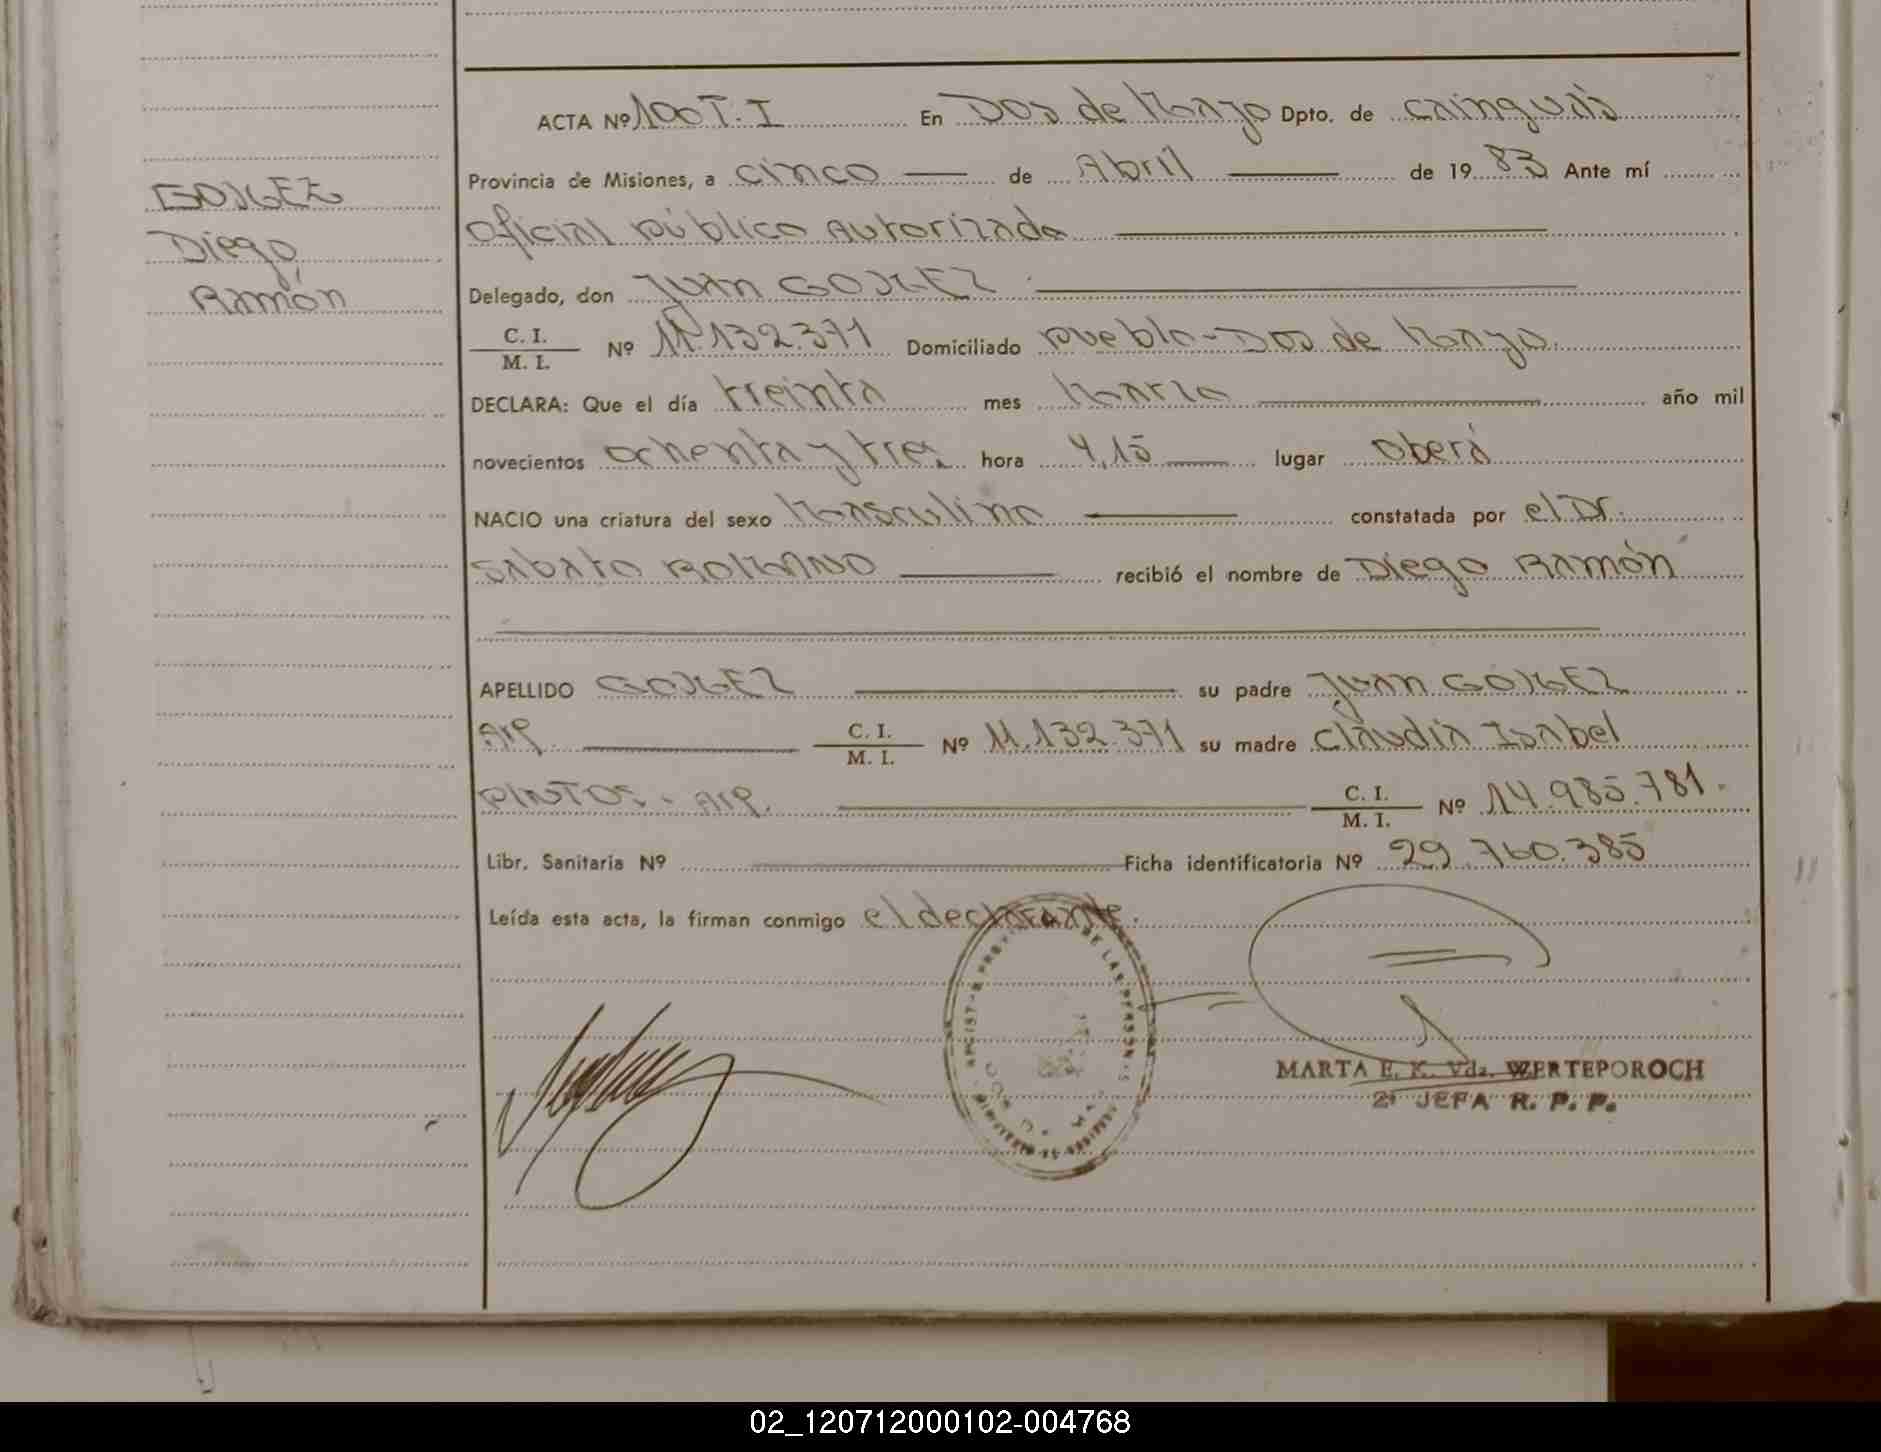 GOMEZ
Diego
Ramón
ACTA Nº 100 T. I En Dos de Mayo Dpto. de Cainguás
Provincia de Misiones, a cinco de Abril de 1983 Ante mí
Oficial público Autorizada
Delegado, don Juan GOMEZ
C. I.
M. I.
Nº 11.132.371 Domiciliado pueblo - Dos de Mayo.
DECLARA: Que el día treinta mes Marzo año mil
novecientos ochenta y tres hora 4,15 lugar Oberá
NACIO una criatura del sexo Masculino constatada por el Dr.
SABATO ROMANO recibió el nombre de Diego Ramón
APELLIDO GOMEZ su padre Juan GOMEZ
Arg. C. I.
M. I.
Nº 11.132.371 su madre Claudia Isabel
PINTOS - Arg. C. I.
M. I.
Nº 14.985.781.
Libr. Sanitaria Nº Ficha identificatoria Nº 29.760.385
Leída esta acta, la firman conmigo el declarante.
DE LAS PERSONAS
MARTA E. K. Vda. WERTEPOROCH
2ª JEFA R. P. P.
02_120712000102-004768